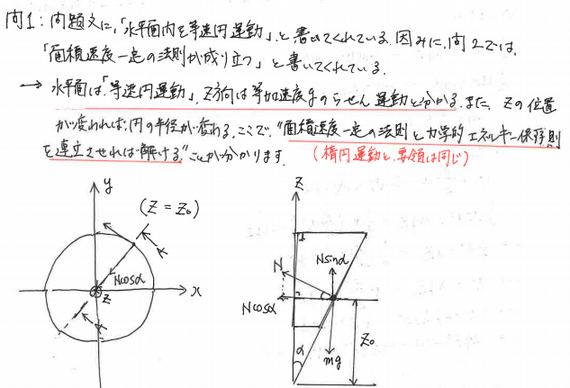 問1：問題文に、「水平面内を等速円運動」と書いてくれている。因みに、問2では、
「面積速度一定の法則が成り立つ」と書いてくれている。
→ 水平面は「等速円運動」、Z方向は等加速度gのらせん運動と分かる。また、Zの位置
が変われば、円の半径が変わる。ここで、"面積速度一定の法則と力学的エネルギー保存則
を連立させれば解ける"ことが分かります。 (楕円運動と、要領は同じ)
y
(Z = Z₀)
Ncosα
Z
x
Z
N
Nsinα
Ncosα
Z₀
α
mg